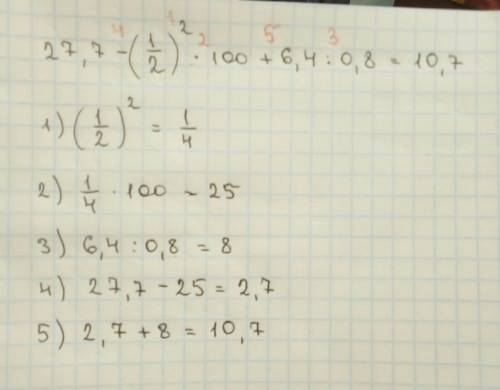 4 1 2 5 3
27,7 - (1/2)² · 100 + 6,4 : 0,8 = 10,7
1) (1/2)² = 1/4
2) 1/4 · 100 - 25
3) 6,4 : 0,8 = 8
4) 27,7 - 25 = 2,7
5) 2,7 + 8 = 10,7